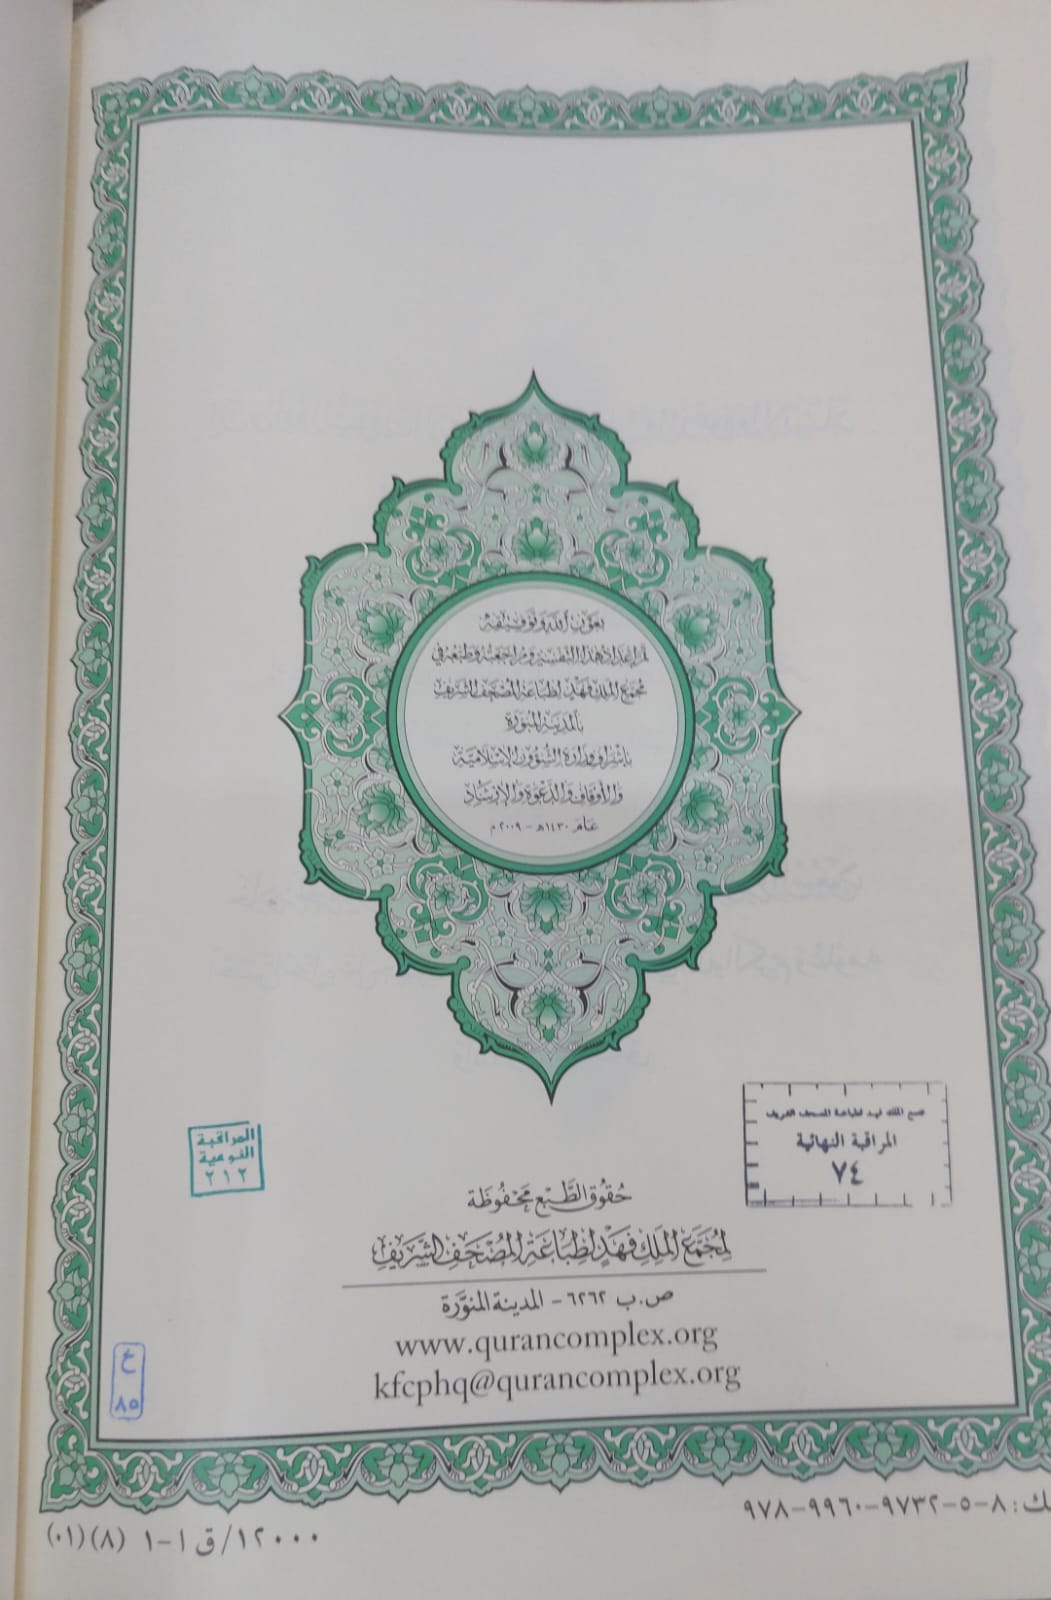 بعون الله وتوفيقه
تم إعداد هذا التفسير ومراجعته وطبعه في
مجمع الملك فهد لطباعة المصحف الشريف
بالمدينة المنورة
بإشراف وزارة الشؤون الإسلامية
والأوقاف والدعوة والإرشاد
عام ١٤٣٠هـ - ٢٠٠٩م
مجمع الملك فهد لطباعة المصحف الشريف
المراقبة النهائية
٧٤
المراقبة
النوعية
٢١٢
حُقُوق الطَّبْع مَحْفُوظَة
لِمُجَمَّع المَلِك فَهْد لِطِبَاعَةِ المُصْحَفِ الشَّرِيف
ص.ب ٦٢٦٢ - المدينة المنوّرة
www.qurancomplex.org
kfcphq@qurancomplex.org
خ
٨٥
ك: ٨-٥-٩٧٣٢-٩٩٦٠-٩٧٨
١٢٠٠٠/ق ١-١ (٨)(٠١)